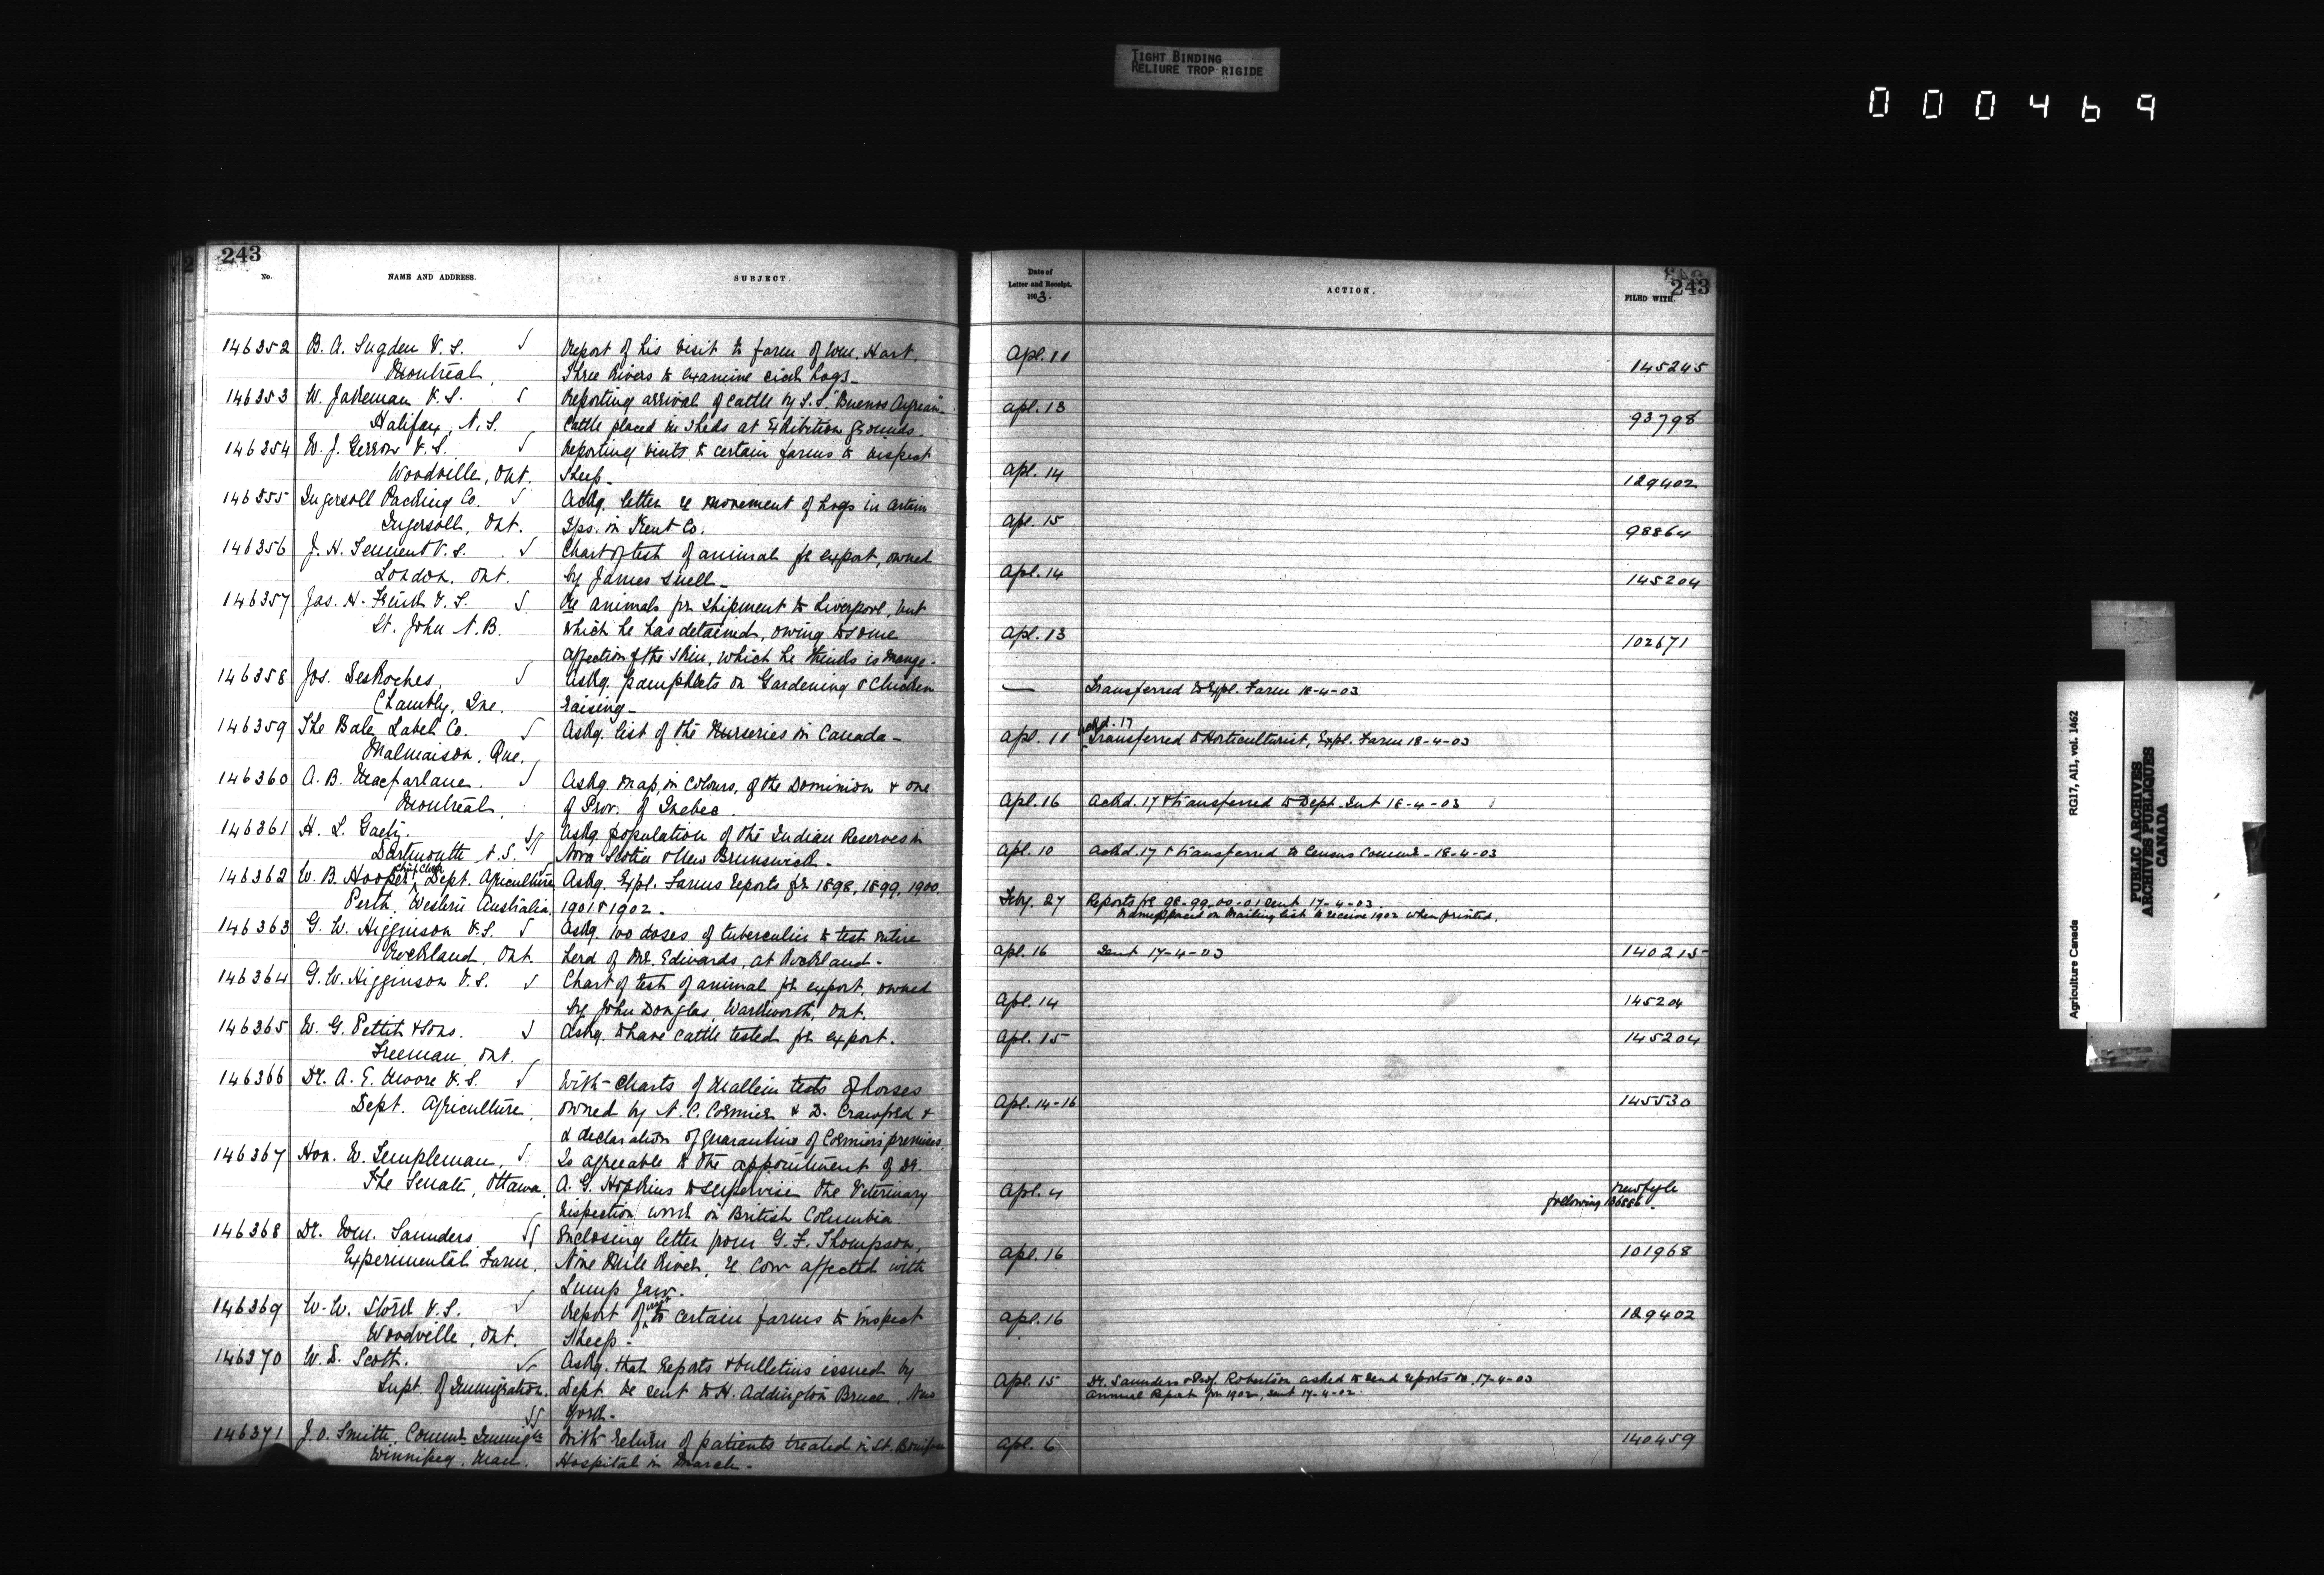 TIGHT BINDING
RELIURE TROP RIGIDE
000469
243
No. NAME AND ADDRESS. SUBJECT.
146352 B. A. Sugden V.S. Report of his visit to farm of Wm. Hart.
Montreal, Three Rivers to examine sick hogs_
146353 W. Jakeman V.S. Reporting arrival of cattle by S.S. "Buenos Ayrean"_
Halifax, N.S. Cattle placed in sheds at Exhibition grounds.
146354 W. J. Gerrow V.S. Reporting visits to certain farms to inspect
Woodville, Ont. Sheep_
146355 Ingersoll Packing Co. Ackg. letter re movement of hogs in certain
Ingersoll, Ont. Tps. in Kent Co.
146356 J. H. Tennent V.S. Chart of test of animal for export, owned
London, Ont. by James Snell_
146357 Jas. H. Frink V.S. Re animals for shipment to Liverpool, but
St. John N.B. which he has detained, owing to some
affection of the skin, which he thinks is mange.
146358 Jos. DesRoches, Askg. pamphlets on Gardening & Chicken
Chambly, Que. raising_
146359 The Bale Label Co. Askg. list of the Nurseries in Canada_
Malmaison, Que.
146360 A. B. Macfarlane. Askg. map, in colours, of the Dominion & one
Montreal. of Prov. of Quebec.
146361 H. L. Gaetz. Askg. population of the Indian Reserves in
Dartmouth, N.S. Nova Scotia & New Brunswick.
146362 W. B. Hooper, Chief Clerk Dept. Agriculture Askg. Expl. Farms reports for 1898, 1899, 1900,
Perth, Western Australia, 1901 & 1902.
146363 G. W. Higginson V.S. Askg. 100 doses of tuberculin to test entire
Rockland, Ont. herd of Mr. Edwards, at Rockland.
146364 G. W. Higginson V.S. Chart of test of animal for export, owned
by John Douglas, Warkworth, Ont.
146365 W. G. Pettit & Sons. Askg. to have cattle tested for export.
Freeman, Ont.
146366 Dr. A. E. Moore V.S. With charts of mallein tests of horses
Dept. Agriculture, owned by N. C. Cormier & D. Crawford &
& declaration of quarantine of Cormier's premises.
146367 Hon. W. Templeman, Is agreeable to the appointment of Dr.
The Senate, Ottawa. A. G. Hopkins to supervise the Veterinary
inspection work in British Columbia.
146368 Dr. Wm. Saunders Enclosing letter from G. F. Thompson,
Experimental Farm, Nine Mile River, re Cow affected with
Lump Jaw.
146369 W. W. Stork V.S. Report of visit to certain farms to inspect
Woodville, Ont. Sheep_
146370 W. D. Scott. Askg. that reports & bulletins issued by
Supt. of Immigration. Dept. be sent to H. Addington Bruce, New
York.
146371 J. O. Smith, Commr. Immign. With return of patients treated in St. Boniface
Winnipeg, Man. Hospital in March.
243
Date of
Letter and Receipt,
1903. ACTION. FILED WITH.
Apl. 11 145245
Apl. 13 93798
Apl. 14 129402
Apl. 15 98864
Apl. 14 145204
Apl. 13 102671
— Transferred to Expl. Farm 18-4-03
Ackd. 17
Apl. 11 Transferred to Horticulturist, Expl. Farm 18-4-03
Apl. 16 Ackd. 17 & transferred to Dept. Int 18-4-03
Apl. 10 Ackd. 17 & transferred to Census Commr. 18-4-03
Feby. 27 Reports for 98-99-00-01 sent 17-4-03.
Name placed on mailing list to receive 1902 when printed.
Apl. 16 Sent 17-4-03 140215
Apl. 14 145204
Apl. 15 145204
Apl. 14-16 145530
Apl. 4 new file
following 136886.
Apl. 16 101968
Apl. 16 129402
Apl. 15 Dr. Saunders & Prof. Robertson asked to send reports &c, 17-4-03
Annual Report for 1902, sent 17-4-02.
Apl. 6 140459
Agriculture Canada RG17, AII, vol. 1462
PUBLIC ARCHIVES
ARCHIVES PUBLIQUES
CANADA